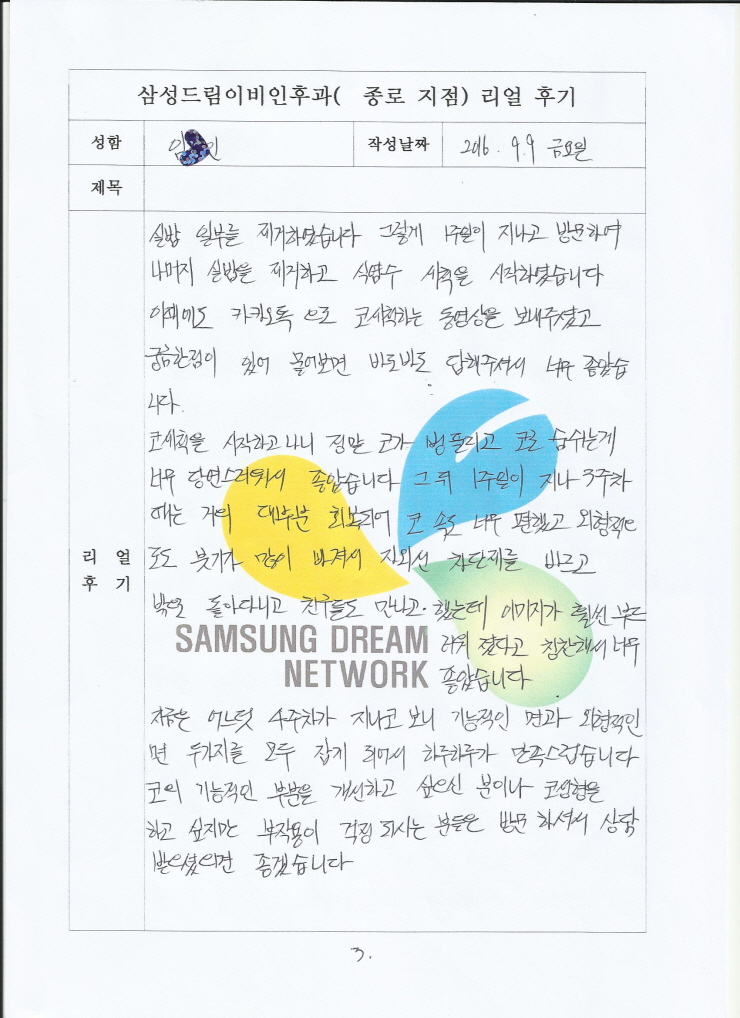 삼성드림이비인후과( 종로 지점) 리얼 후기
성함 임 인 작성날짜 2016. 9. 9 금요일
제목
리얼 후기
실밥 일부를 제거하였습니다 그렇게 1주일이 지나고 방문하여
나머지 실밥을 제거하고 식염수 세척을 시작하였습니다
이때에도 카카오톡 으로 코세척하는 동영상을 보내주셨고
궁금한점이 있어 물어보면 바로바로 답해주셔서 너무 좋았습
니다.
코세척을 시작하고 나니 정말 코가 뻥 뚤리고 코로 숨쉬는게
너무 당연스러워서 좋았습니다 그 뒤 1주일이 지나 3주차
때는 거의 대부분 회복되어 코 속도 너무 편했고 외형적으
로도 붓기가 많이 빠져서 자외선 차단제를 바르고
밖을 돌아다니고 친구들도 만나고. 했는데 이미지가 훨씬 부드
러워 졌다고 칭찬해서 너무
좋았습니다
SAMSUNG DREAM
NETWORK
지금은 어느덧 4주차가 지나고 보니 기능적인 면과 외형적인
면 두가지를 모두 잡게 되어서 하루하루가 만족스럽습니다
코의 기능적인 부분을 개선하고 싶으신 분이나 코성형을
하고 싶지만 부작용이 걱정 되시는 분들은 방문 하셔서 상담
받으셨으면 좋겠습니다
3.